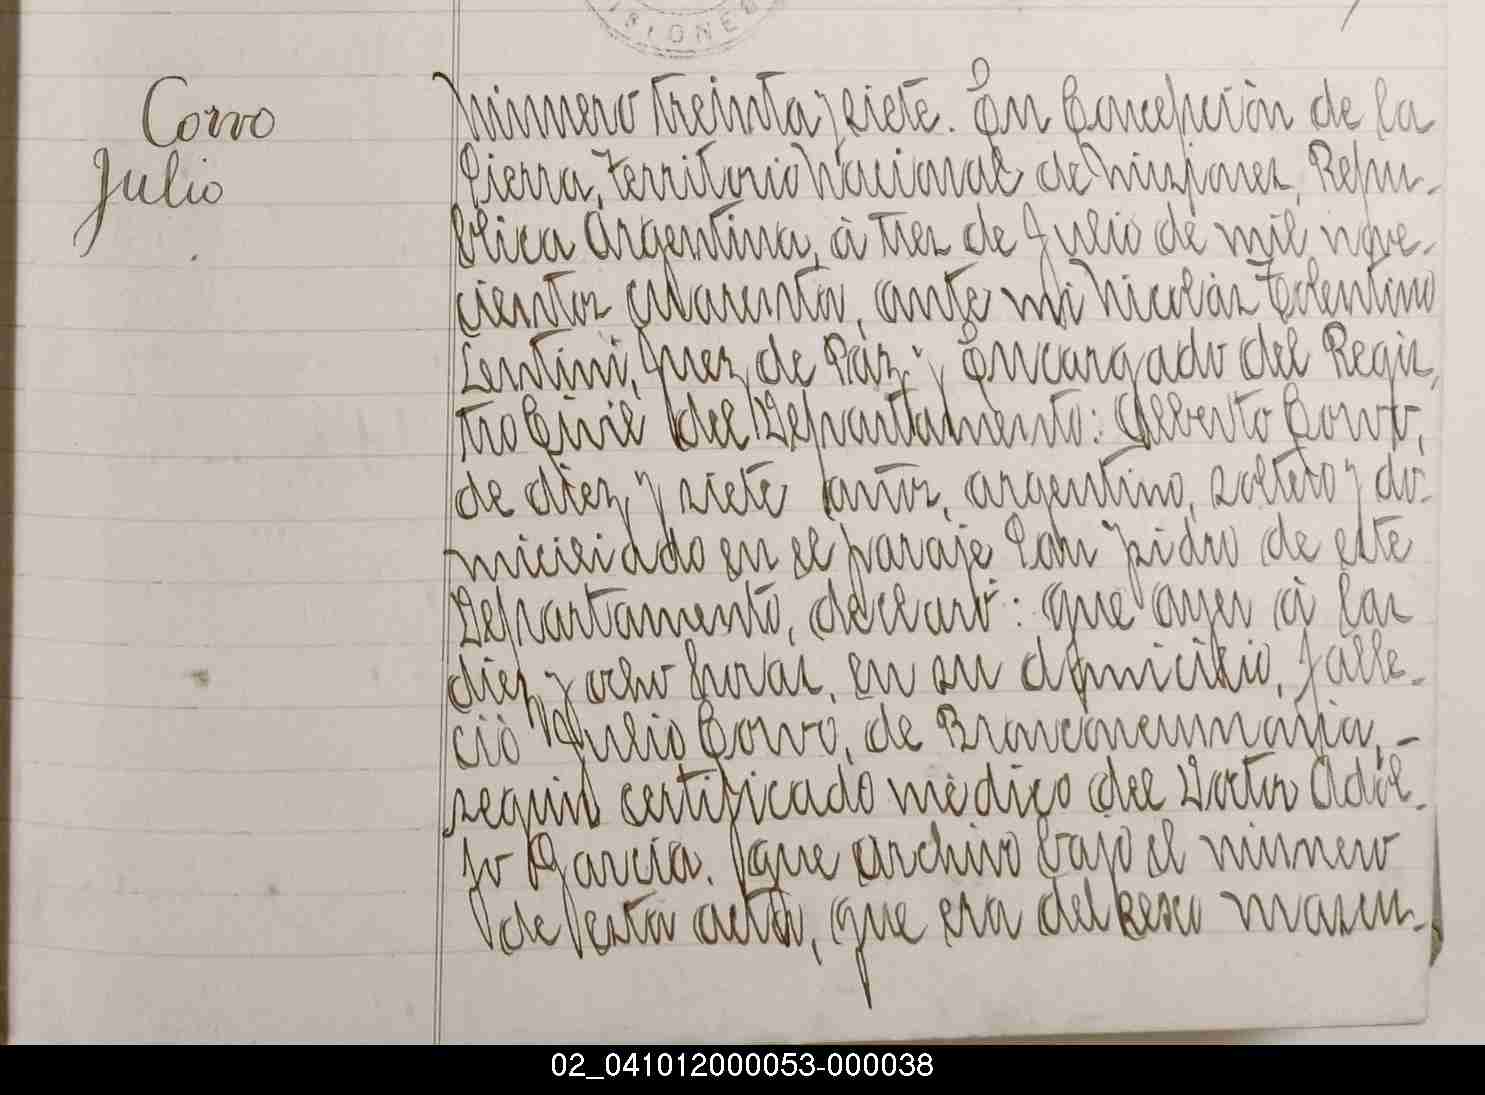 ISIONES
Corvo
Julio
Número treinta y siete. En Concepción de la
Sierra, Territorio Nacional de Misiones, Repú-
blica Argentina, à tres de Julio de mil nove-
cientos cuarenta, ante mi Nicolás Tolentino
Lentini, Juez de Paz y Encargado del Regis-
tro Civil del Departamento: Alberto Corvo,
de diez y siete años, argentino, soltero y do-
miciliado en el paraje San Isidro de este
Departamento, declaró: que ayer à las
diez y ocho horas, en su domicilio, falle-
ció Julio Corvo, de Bronconeumonia, -
según certificado médico del Doctor Adol-
fo Garcia. que archivo bajo el número
de esta acta, que era del sexo mascu-
02_041012000053-000038